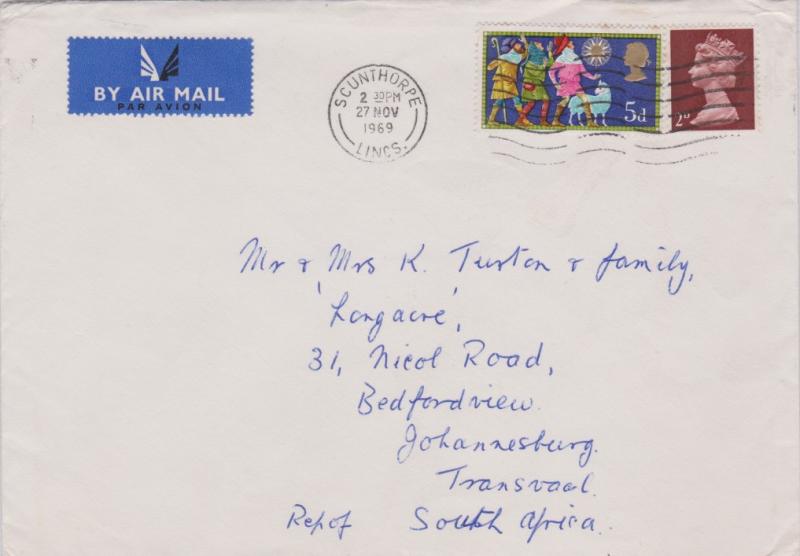 BY AIR MAIL
PAR AVION
SCUNTHORPE
2 30PM
27 NOV
1969
LINCS.
5d
2D
Mr & Mrs K. Turton & family,
'Longacre',
31, Nicol Road,
Bedfordview.
Johannesburg.
Transvaal.
Rep of South Africa.